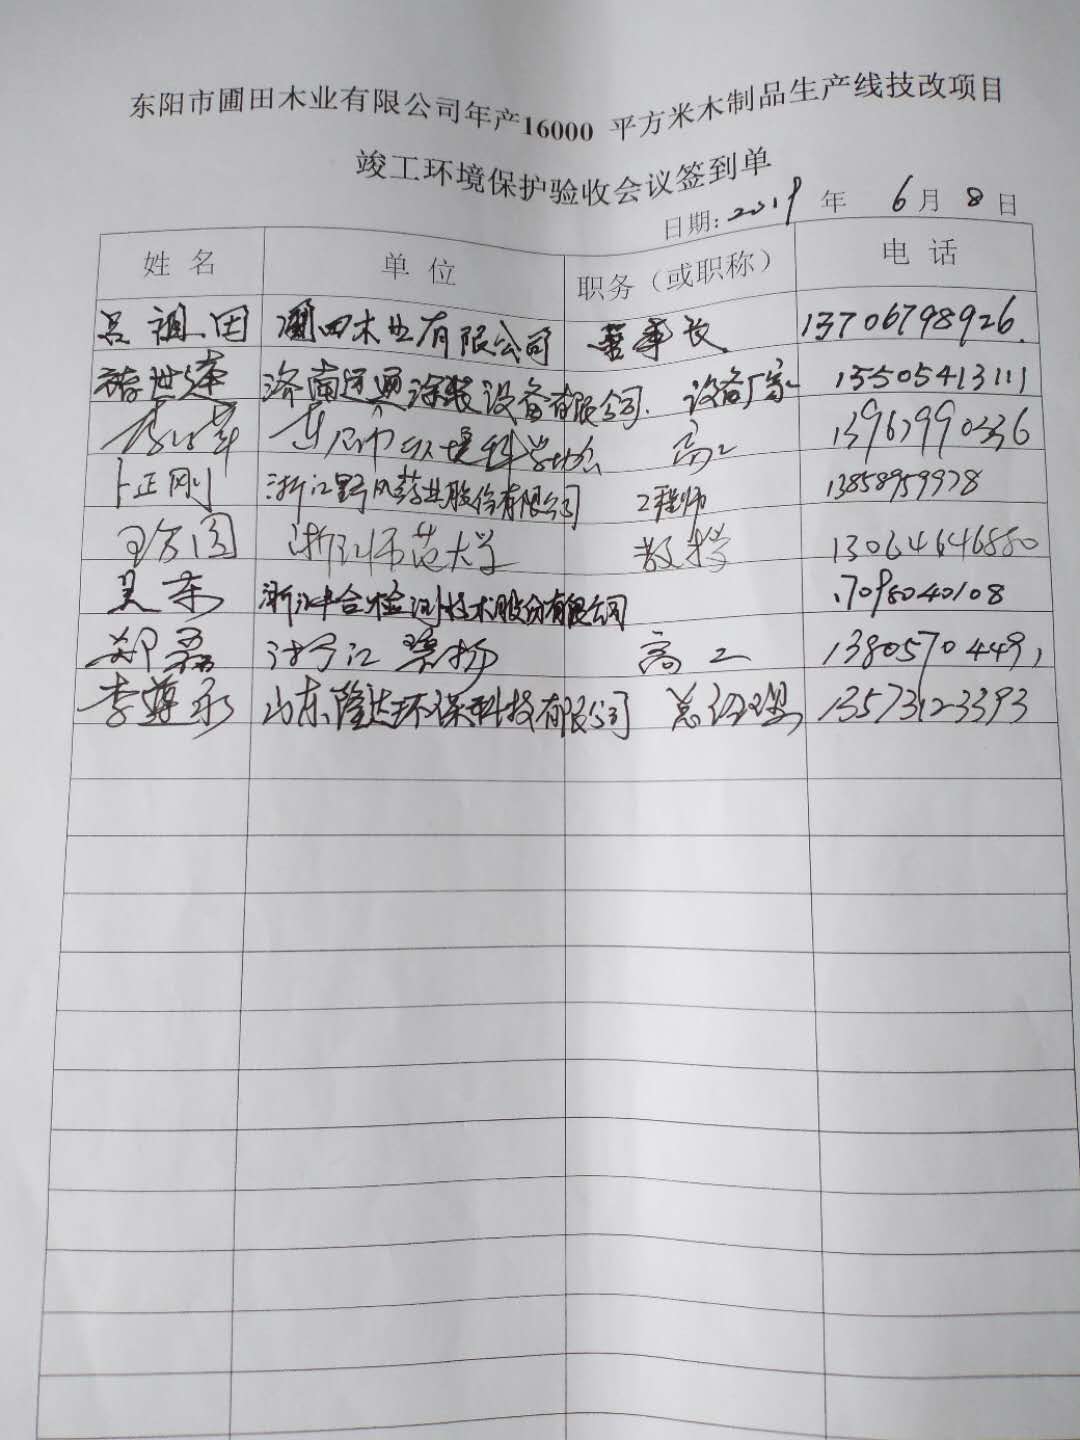 东阳市圃田木业有限公司年产16000 平方米木制品生产线技改项目
竣工环境保护验收会议签到单
日期: 2019 年 6月 8日
姓名 单位 职务（或职称） 电话
吕祖田 圃田木业有限公司 董事长 13706798926
世 济南通涂装设备有限公司 设备厂家 13505413111
李 东阳市环境科学学会 高工 13967990336
卜正刚 浙江野风药业股份有限公司 工程师 13858959978
浙江师范大学 教授 13064646880
吴东 浙江中合检测技术股份有限公司 17098040108
郑磊 浙江碧扬 高工 13805704491
李尊永 山东隆达环保科技有限公司 总经理 13573123393